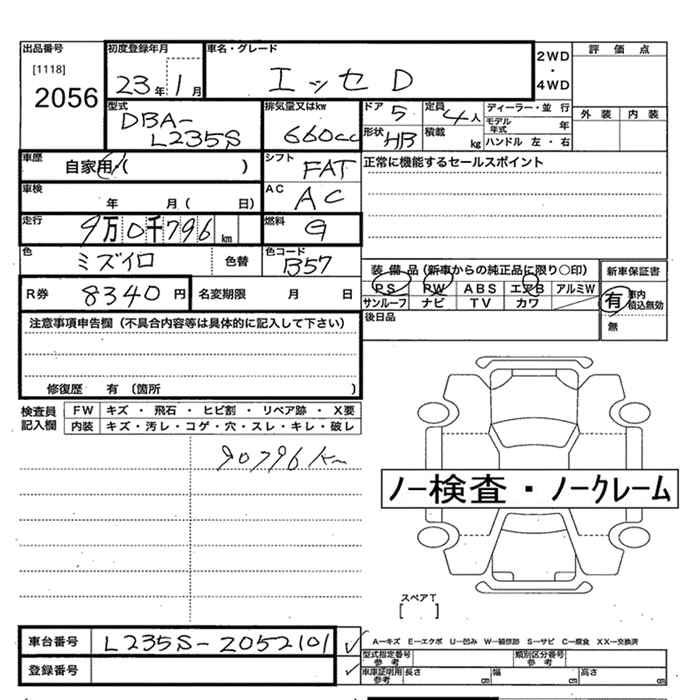 出品番号 初度登録年月 車名・グレード 2WD・4WD 評価点
[1118]
2056
23年1月 エッセD
外装 内装
型式 DBA-L235S
排気量又はkw 660cc
ドア 5 定員 4人 ディーラー・並行
モデル年式 年
形状 HB 積載 kg ハンドル 左・右
車歴 自家用( )
シフト FAT
正常に機能するセールスポイント
車検 年 月( 日)
AC AC
走行 9万0千796km
燃料 G
色 ミズイロ 色替
色コード B57
装備品(新車からの純正品に限り○印) 新車保証書
PS PW ABS エアB アルミW
サンルーフ ナビ TV カワ
有 車内積込無効
無
R券 8340円 名変期限 月 日
後日品
注意事項申告欄(不具合内容等は具体的に記入して下さい)
修復歴 有(箇所 )
検査員記入欄
FW キズ・飛石・ヒビ割・リペア跡・X要
内装 キズ・汚レ・コゲ・穴・スレ・キレ・破レ
90796K
ノー検査・ノークレーム
スペアT
[ ]
車台番号 L235S-2052101
A-キズ E-エクボ U-凹み W-補修跡 S-サビ C-腐食 XX-交換済
登録番号
型式指定番号 参考 類別区分番号 参考
車庫証明用 参考 長さ cm 幅 cm 高さ cm